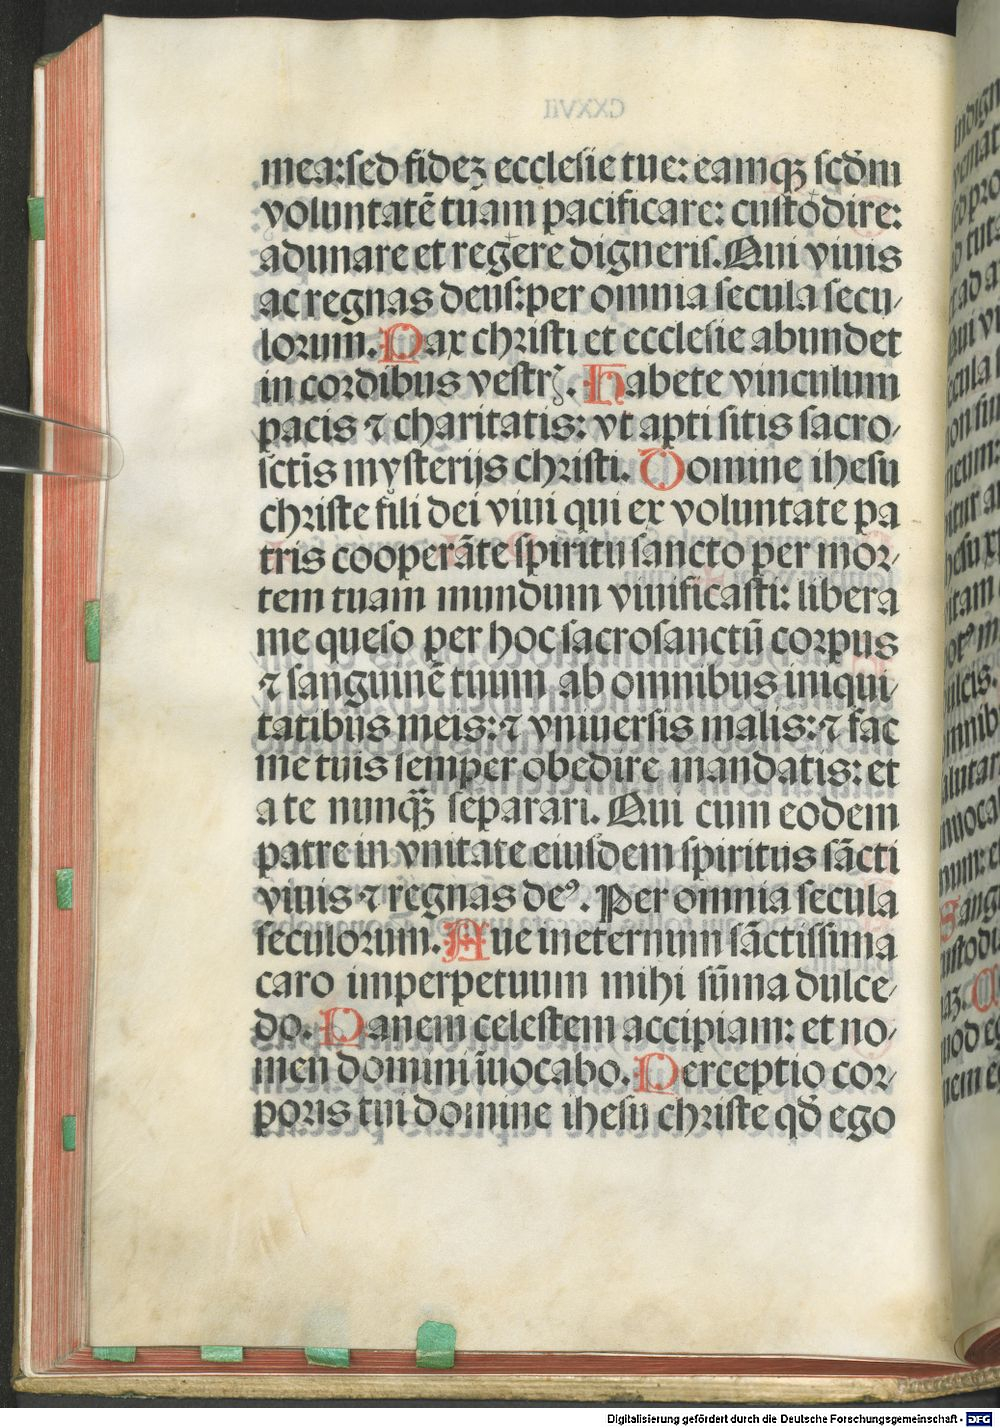 mea: sed fideꝫ ecclesie tue: eamqꝫ scd̄m
voluntatē tuam pacificare: custodire:
adunare et regere digneris. Qui viuis
ac regnas deus: per omnia secula secu-
lorum. Pax christi et ecclesie abundet
in cordibus vestrꝭ. Habete vinculum
pacis ⁊ charitatis: vt apti sitis sacro-
sctīs mysterijs christi. Domine ihesu
christe fili dei viui qui ex voluntate pa
tris cooperāte spiritu sancto per mor-
tem tuam mundum viuificasti: libera
me queso per hoc sacrosanctū corpus
⁊ sanguinē tuum ab omnibus iniqui-
tatibus meis: ⁊ vniuersis malis: ⁊ fac
me tuis semper obedire mandatis: et
a te nunqꝫ separari. Qui cum eodem
patre in vnitate eiusdem spiritus sācti
viuis ⁊ regnas deꝰ. Per omnia secula
seculorum. Aue in eternum sāctissima
caro imperpetuum mihi sūma dulce-
do. Panem celestem accipiam: et no-
men domini īuocabo. Perceptio cor-
poris tui domine ihesu christe qd̄ ego
Digitalisierung gefördert durch die Deutsche Forschungsgemeinschaft - DFG